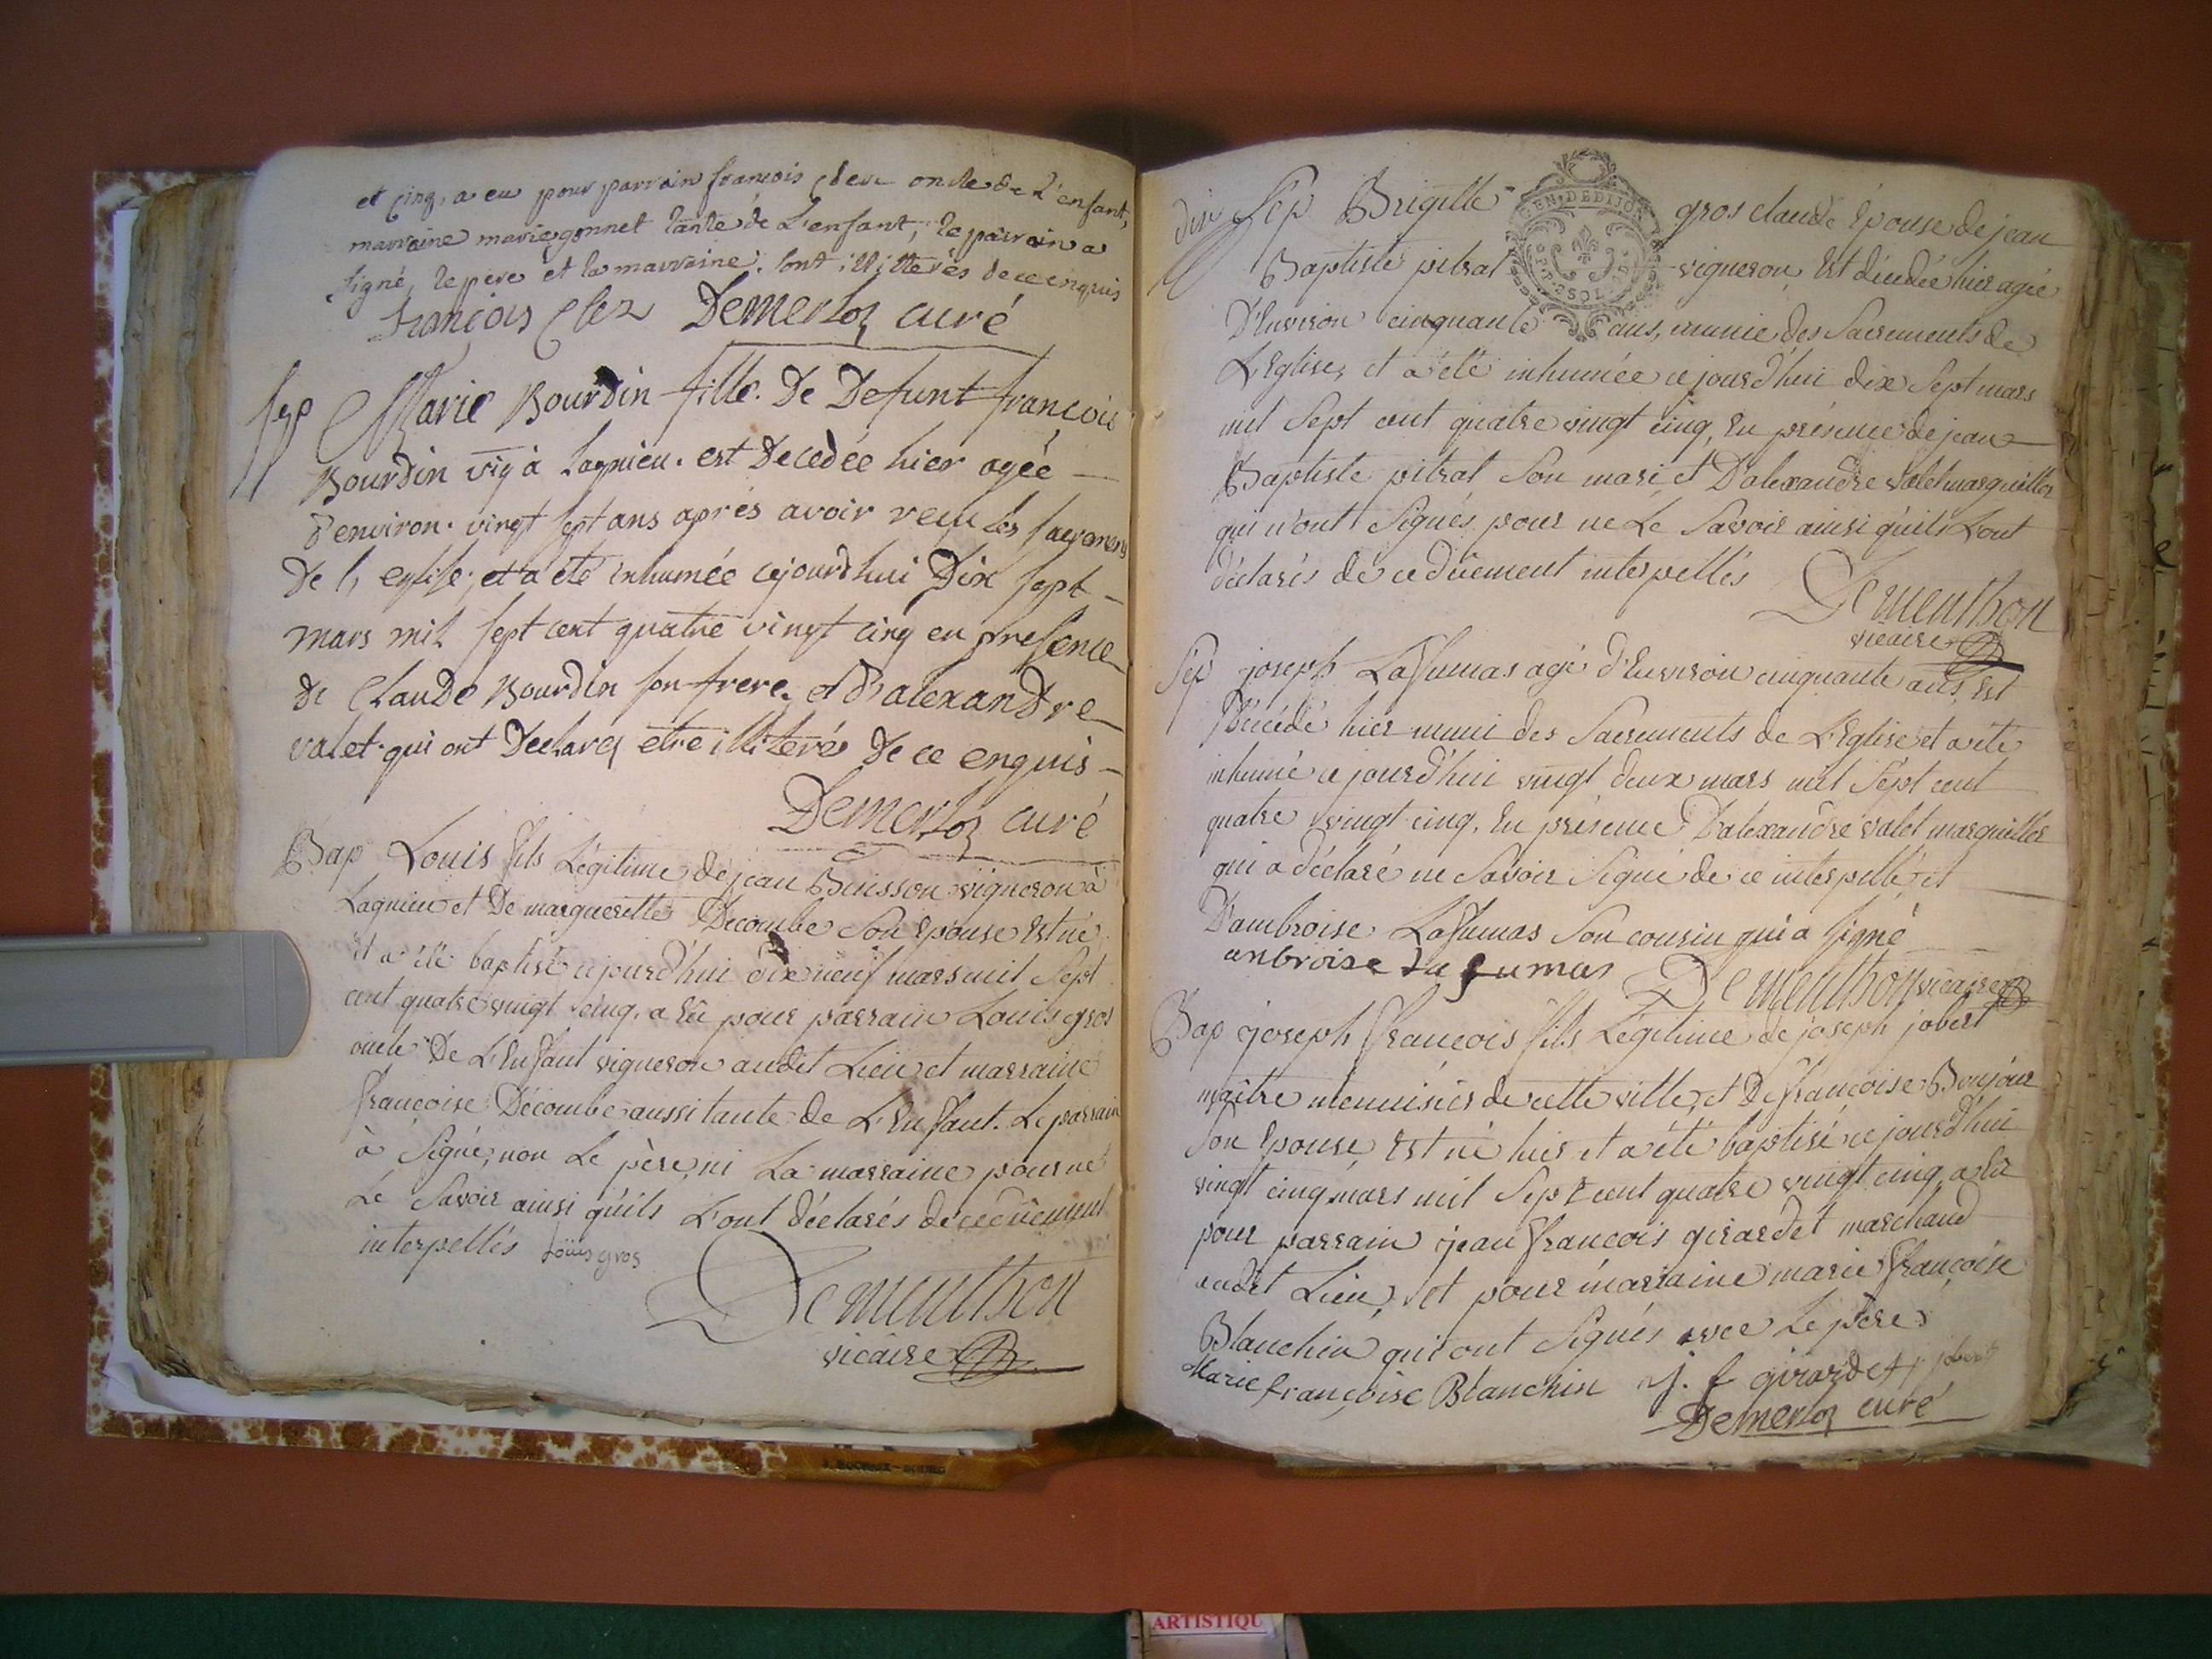 et cinq, a eu pour parrain francois clere oncle de L'enfant,
marraine marie gonnet tante de L'enfant, le parrain a
signé, le pere et la marraine sont illitterés de ce enquis
françois Cler Demerloz curé
sep Marie Bourdin fille De Defunt francois
Bourdin vig à Lagnieu est Decedée hier agée
d'environ vingt sept ans aprés avoir reçu les sacremens
De l'eglise, et a eté inhumée cejourdhui Dix sept
mars mil sept cent quatre vingt cinq en presence
de Claude Bourdin son frere et d'alexandre
valet qui ont Declarez etre illiteré De ce enquis
Demerloz curé
Bap Louis fils Légitime de jean Buisson vigneron à
Lagnieu et De marguerette Décombe Son Epouse Est né
et a été baptisé cejourd'hui dix neuf mars mil Sept
cent quatre vingt cinq, a Eû pour parrain Louis gros
oncle De L'Enfant vigneron audit Lieu et marraine
françoise Décombe aussi tante de L'Enfant. Le parrain
à Signé, non Le père, ni La marraine pour ne
Le Savoir ainsi qu'ils L'ont déclarés de ce dûement
interpellés Loüis gros
Dementhon
vicaire
dix Sep Brigitte gros claude Epouse de jean
Baptiste pitrat vigneron, Est décedée hier agée
D'Environ cinquante ans, munie des Sacrements de
L'Eglise, et a été inhumée cejourd'hui dix Sept mars
mil Sept cent quatre vingt cinq, En présence de jean
Baptiste pitrat Son mari et D'alexandre valet marguiller
qui n'ont Signés pour ne Le Savoir ainsi qu'ils L'ont
déclarés de ce dûement interpellés
Dementhon
vicaire
Sep joseph Lafumas agé d'Environ cinquante ans, Est
Décédé hier muni des Sacrements de L'Eglise et a été
inhumé cejourd'hui vingt deux mars mil Sept cent
quatre vingt cinq, En présence D'alexandre valet marguiller
qui a déclaré ne Savoir Signé de ce interpellé et
D'ambroise Lafumas Son cousin qui a signé
anbroise Lafumas Dementhon vicaire
Bap joseph françois fils Légitime de joseph jobert
maître menuisier de cette ville, et De françoise Bonjour
Son Epouse, Est né hier et a été baptisé cejourd'hui
vingt cinq mars mil Sept cent quatre vingt cinq, a Eû
pour parrain jean françois girardet marchand
audit Lieu, et pour marraine marie françoise
Blanchin qui ont Signés avec Le père
Marie françoise Blanchin j. f girardet j jobert
Demerloz curé
GEN. DE DIJON
ARTISTIQU